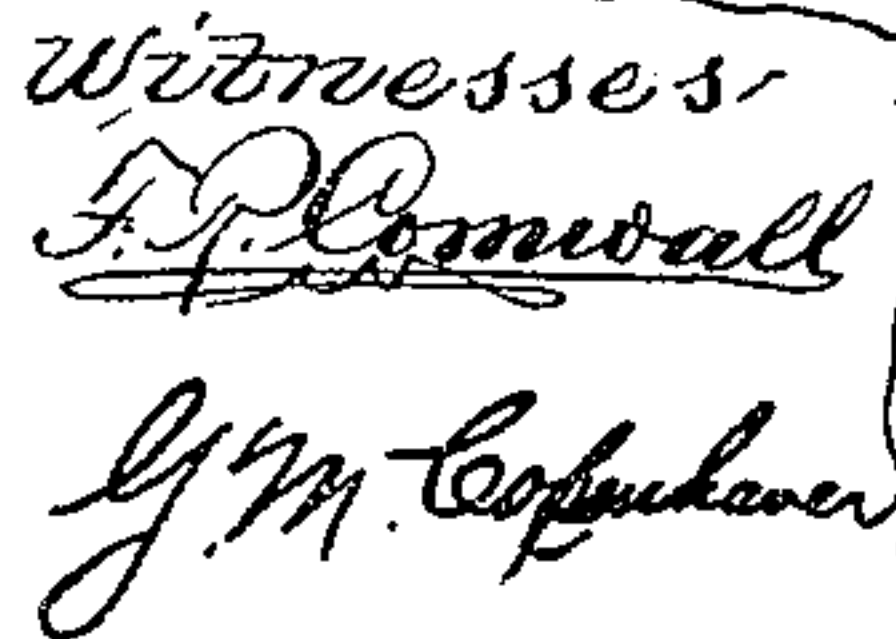 Witnesses
F. R. Cornwall
G. M. Copenhaver